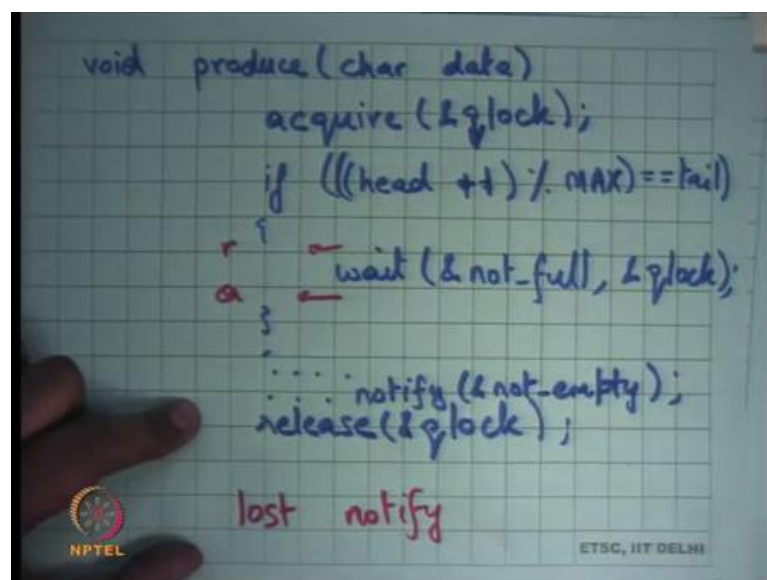 void produce(char data)
acquire(&qlock);
if (((head ++) % MAX)==tail)
{
r
wait(&not_full, &qlock);
a
}
.
. . . . notify(&not_empty);
. . . .
release(&qlock);
lost notify
NPTEL
ETSC, IIT DELHI